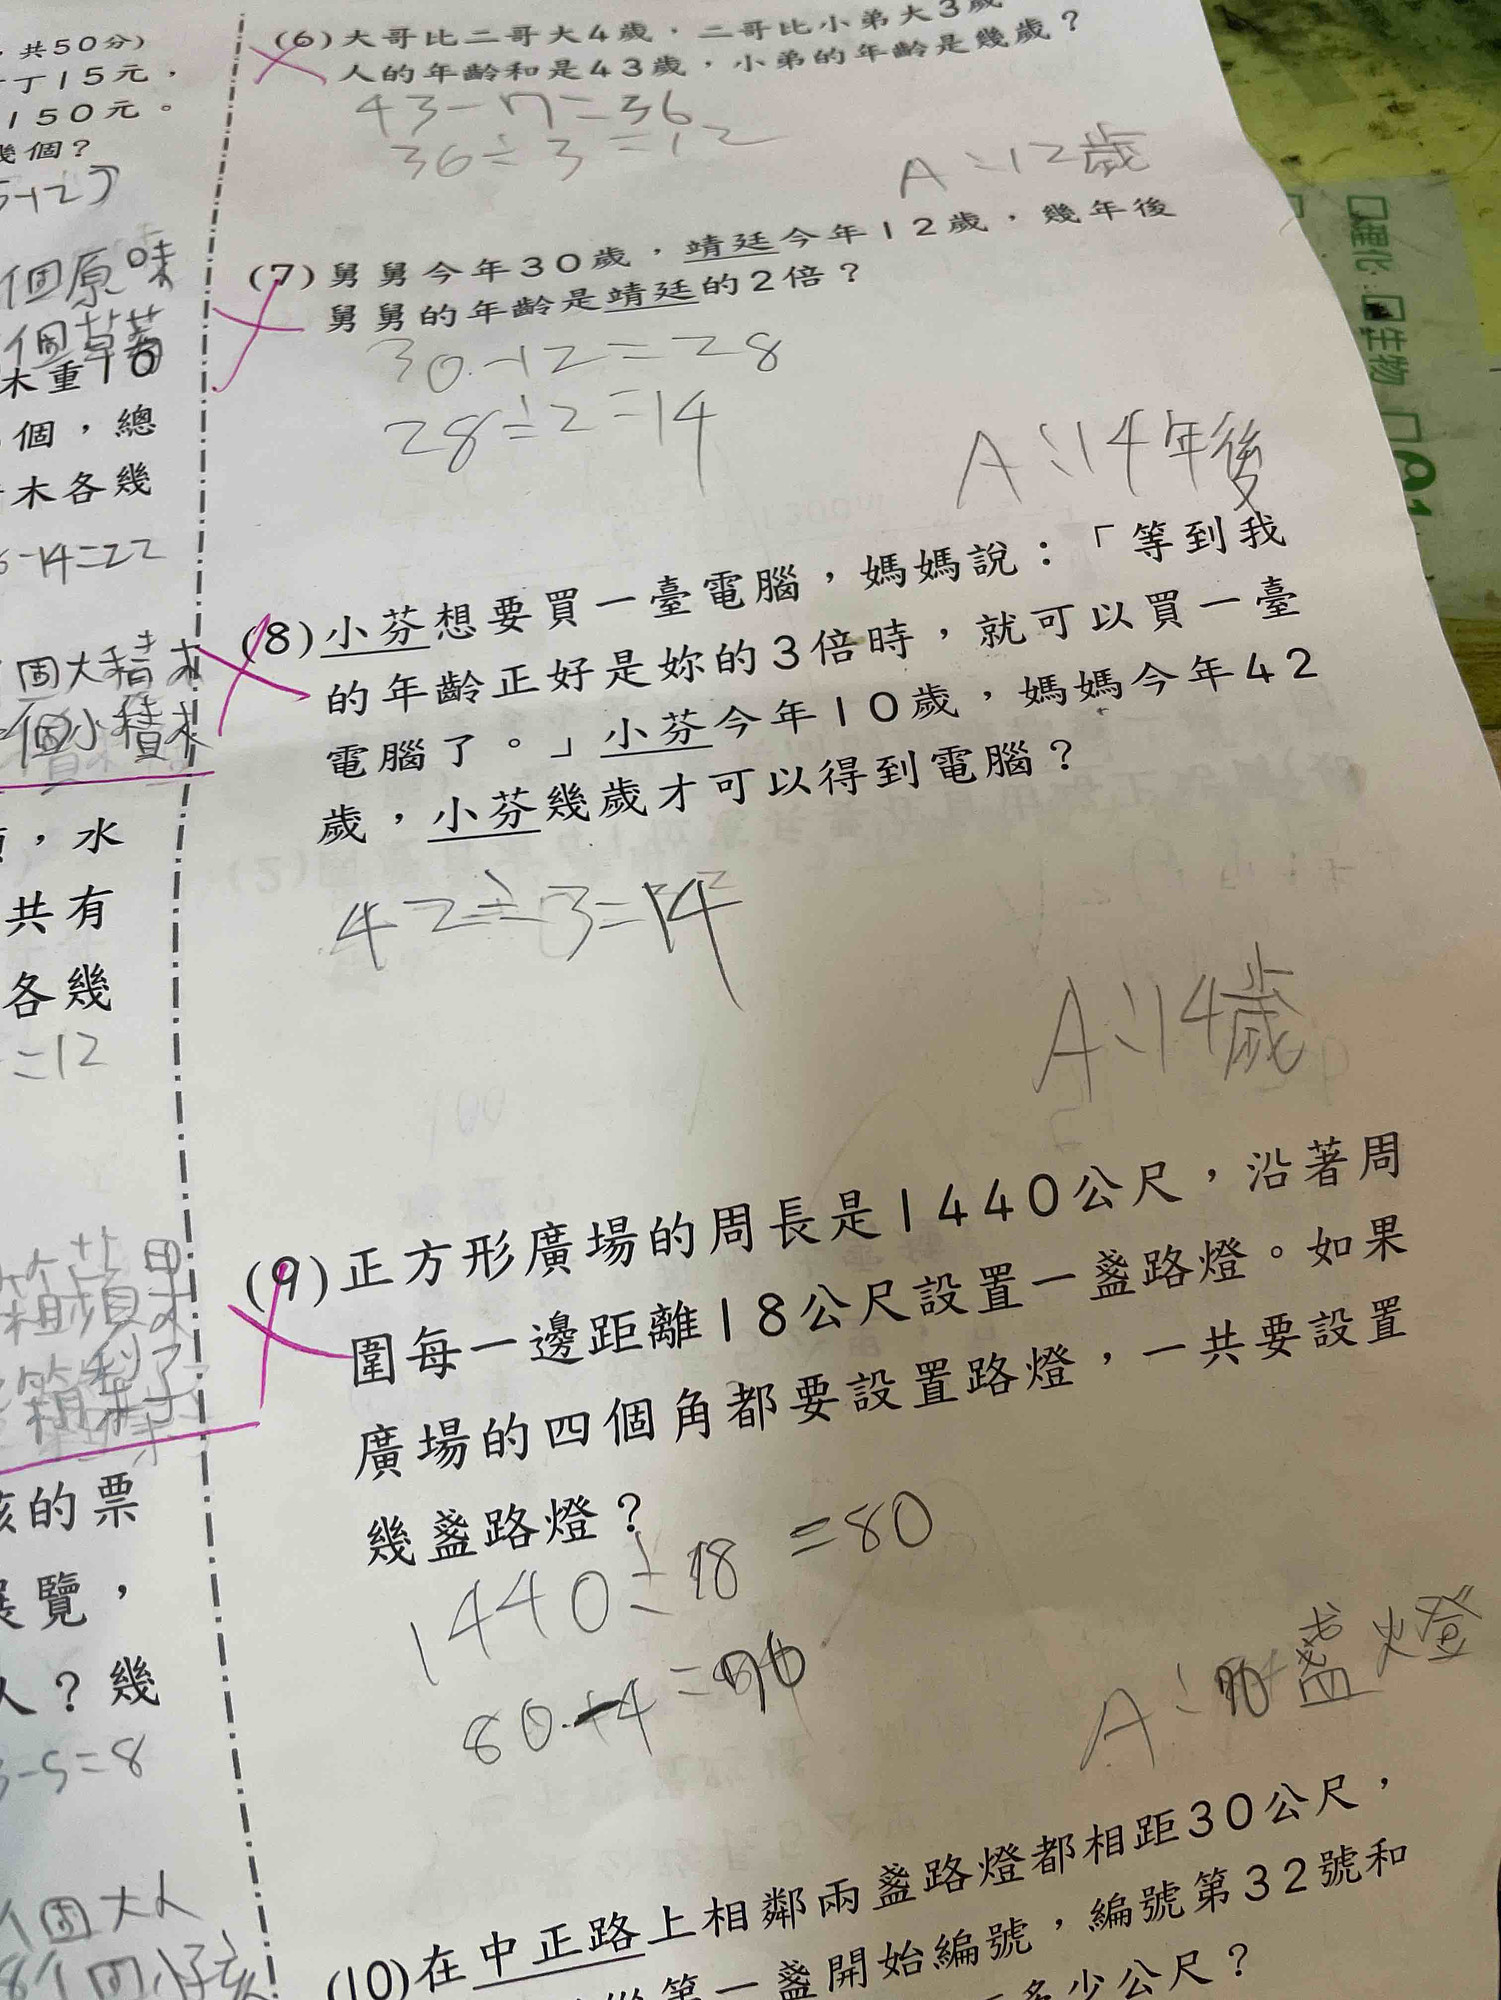 ，共50分）
丁15元，
150元。
幾個？
個原味
個草莓
木重10
個，總
木各幾
-14=22
個大積木
個小積木
，水
共有
各幾
=12
箱蘋果
箱梨子
孩的票
展覽，
人？幾
-5=8
個大人
8個小孩
(6)大哥比二哥大4歲，二哥比小弟大3歲
人的年齡和是43歲，小弟的年齡是幾歲？
43-7=36
36÷3=12
A：12歲
(7)舅舅今年30歲，靖廷今年12歲，幾年後
舅舅的年齡是靖廷的2倍？
30-12=28
28÷2=14
A：14年後
(8)小芬想要買一臺電腦，媽媽說：「等到我
的年齡正好是妳的3倍時，就可以買一臺
電腦了。」小芬今年10歲，媽媽今年42
歲，小芬幾歲才可以得到電腦？
42÷3=14
A：14歲
(9)正方形廣場的周長是1440公尺，沿著周
圍每一邊距離18公尺設置一盞路燈。如果
廣場的四個角都要設置路燈，一共要設置
幾盞路燈？
1440÷18=80
80-4=76
A：盞燈
(10)在中正路上相鄰兩盞路燈都相距30公尺，
從第一盞開始編號，編號第32號和
多少公尺？